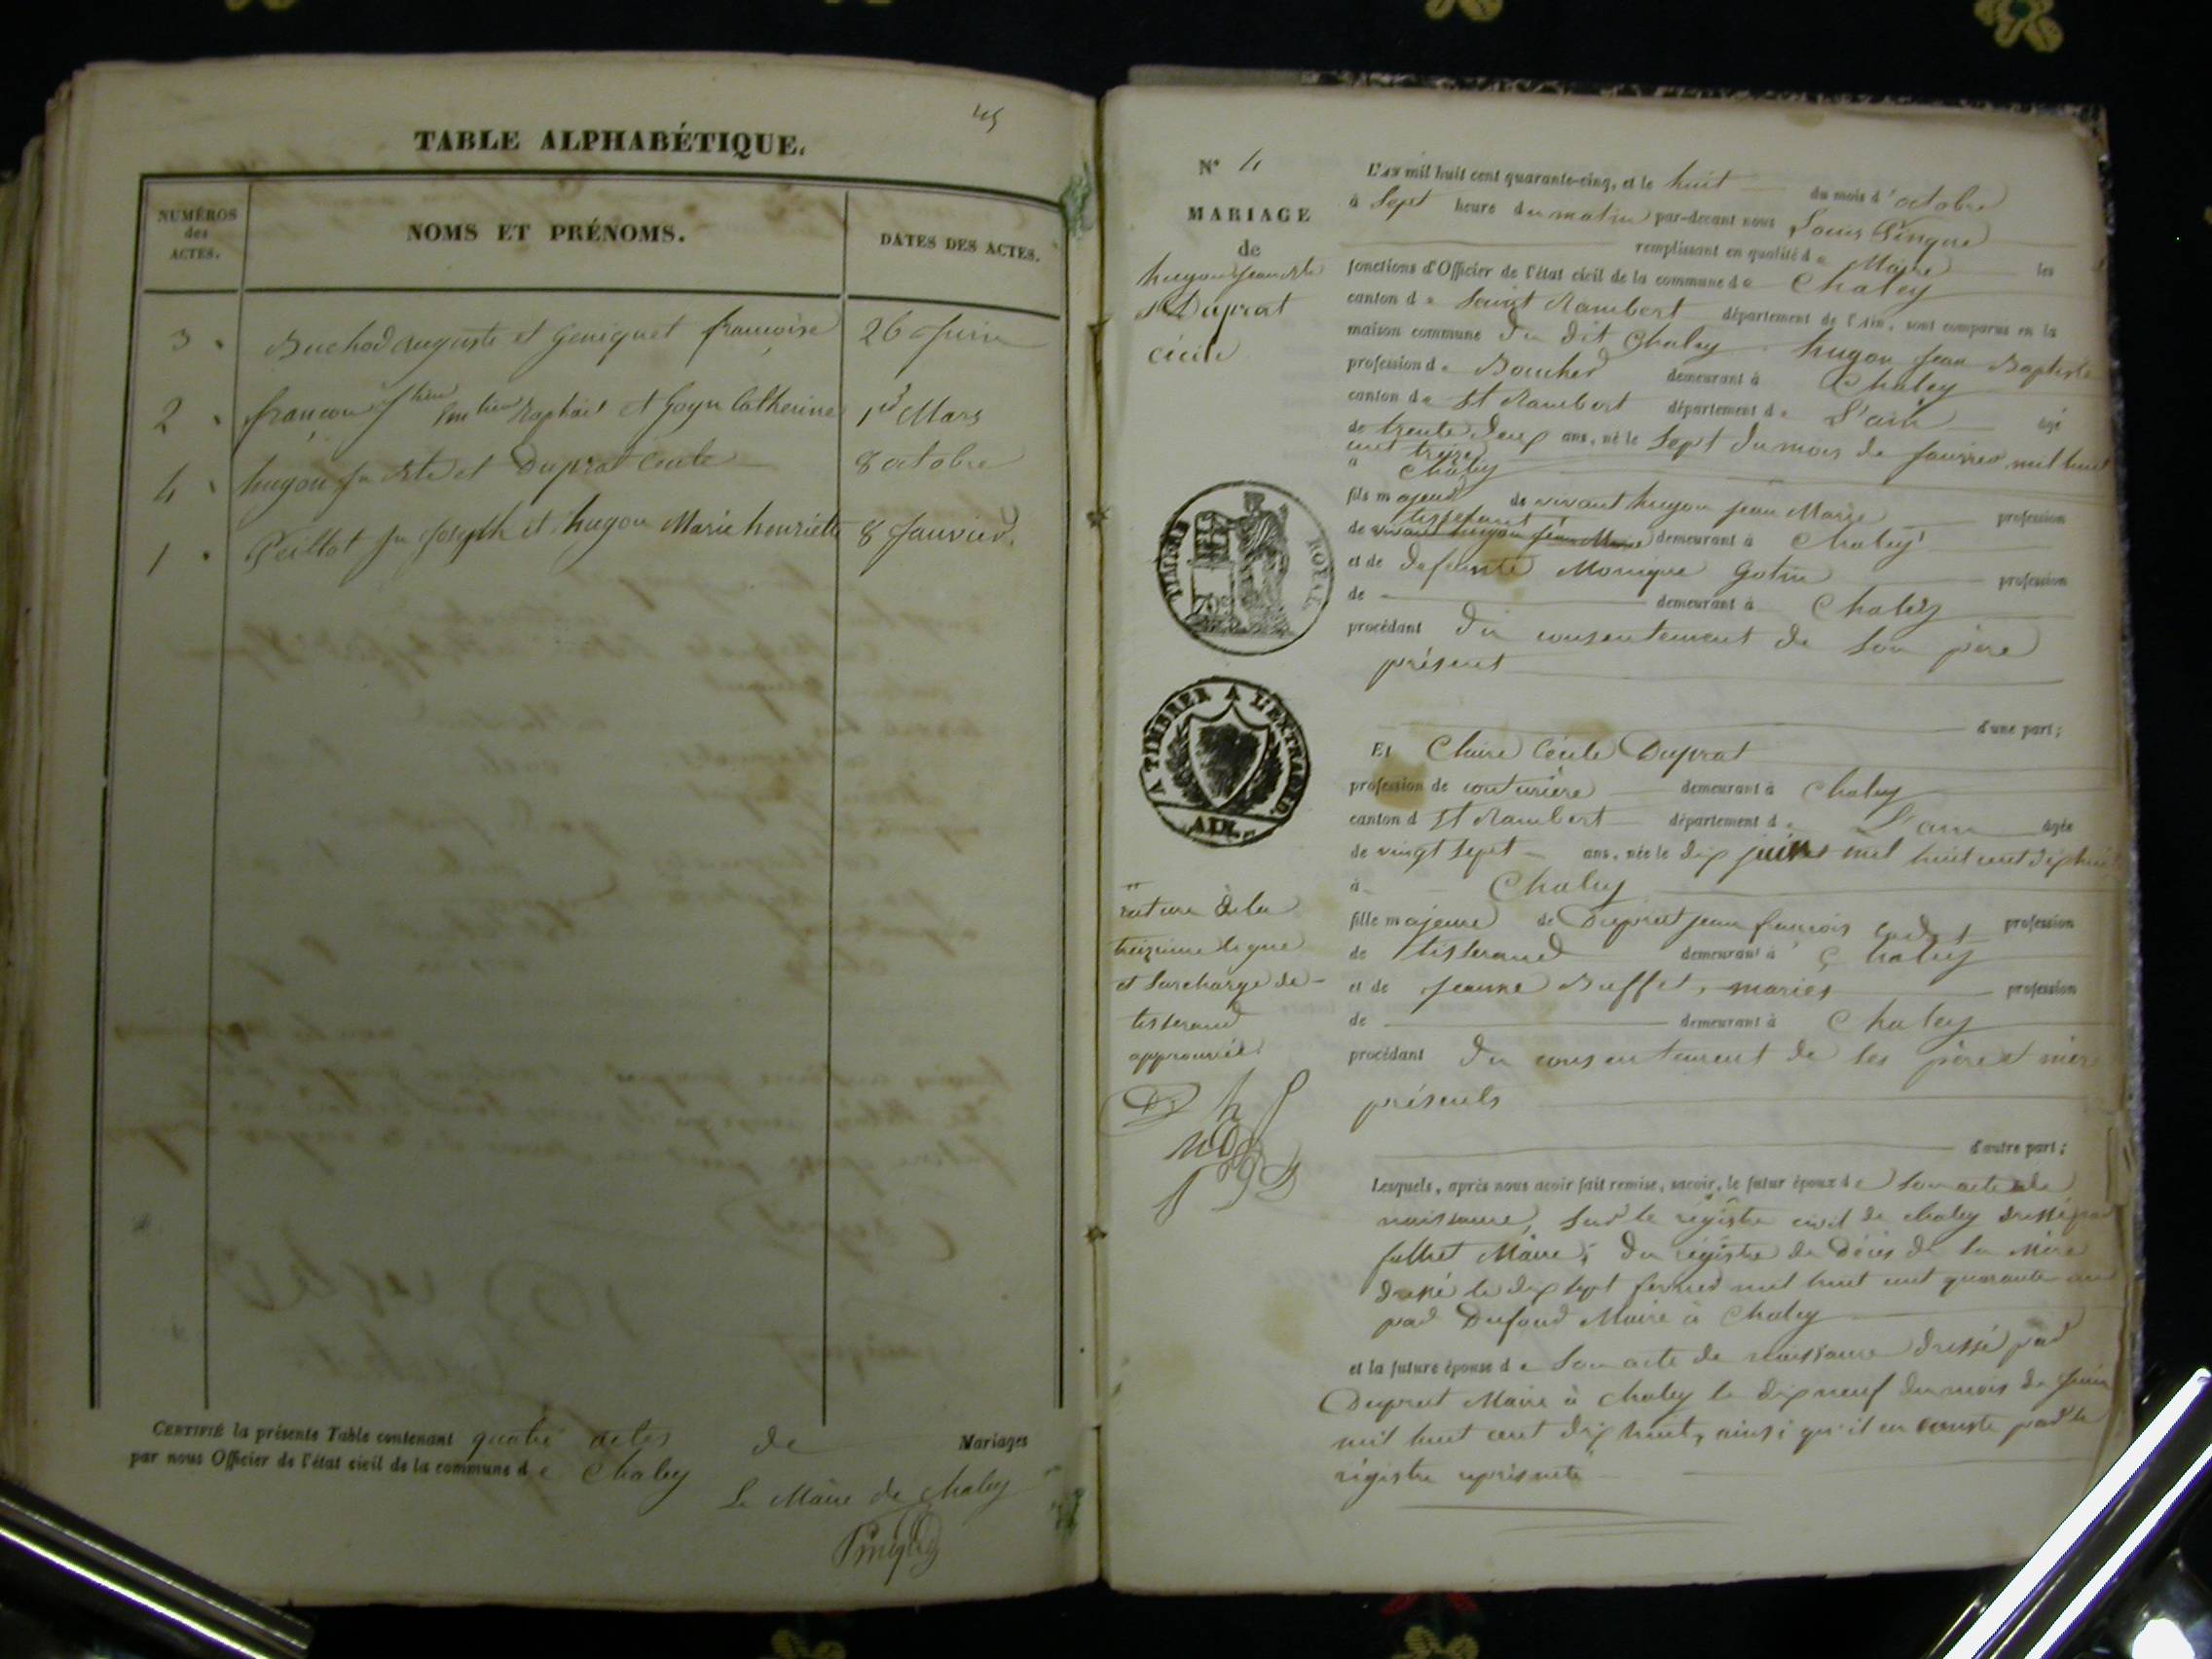 45
TABLE ALPHABÉTIQUE.
NUMÉROS des ACTES.
NOMS ET PRÉNOMS.
DATES DES ACTES.
3. Buchod auguste et Geniquet françoise 26 Juin
2. Raphael et Goyn Catherine 1er Mars
4. hugon Jn Bte et Duprat Cécile 8 octobre
1. Peillot Jn Joseph et hugon Marie henriette 8 Janvier.
CERTIFIÉ la présente Table contenant quatre actes de Mariages
par nous Officier de l'état civil de la commune de Chaley
Le Maire de Chaley
N° 4
MARIAGE
de
hugon Jean Bte
& Duprat
cécile
L'AN mil huit cent quarante-cinq, et le huit du mois d'octobre
à Sept heure du matin par-devant nous Louis Pingue
remplissant en qualité de Maire les
fonctions d'Officier de l'état civil de la commune de Chaley
canton de Saint Rambert département de l'Ain, sont comparus en la
maison commune du dit Chaley hugon Jean Baptiste
profession de Boucher demeurant à Chaley
canton de St Rambert département de L'ain âgé
de trente deux ans, né le Sept du mois de Janvier mil huit
cent treize
à Chaley
fils majeur de vivant hugon Jean Marie profession
tisserand
de vivant hugon Jean Marie demeurant à Chaley
et de defeinte Monique Gotin profession
de demeurant à Chaley
procédant du consentement de son père
présent
d'une part;
TIMBRE ROYAL
A TIMBRER A L'EXTRAORD.
AIN.
Et Claire Cécile Duprat
profession de couturière demeurant à Chaley
canton d St Rambert département de L'ain âgée
de vingt sept ans, née le dix juin mil huit cent dix huit
à Chaley
fille majeure de Duprat Jean françois cadet profession
de tisserand demeurant à Chaley
et de Jeanne Buffet, mariés profession
de demeurant à Chaley
procédant du consentement de ses père et mère
présents
d'autre part;
rature de la
treizieme ligne
et surcharge de
tisserand
approuvée
Lesquels, après nous avoir fait remise, savoir, le futur époux de son acte de
naissance, sur le régistre civil de chaley dressé par
Maire; du régistre de décès de sa mère
dressé le dix sept fevrier mil huit cent quarante
par Dufour Maire à Chaley
et la future épouse de son acte de naissance dressé par
Duprat Maire à Chaley le dix neuf du mois de Juin
mil huit cent dix huit, ainsi qu'il en conste par le
régistre représenté